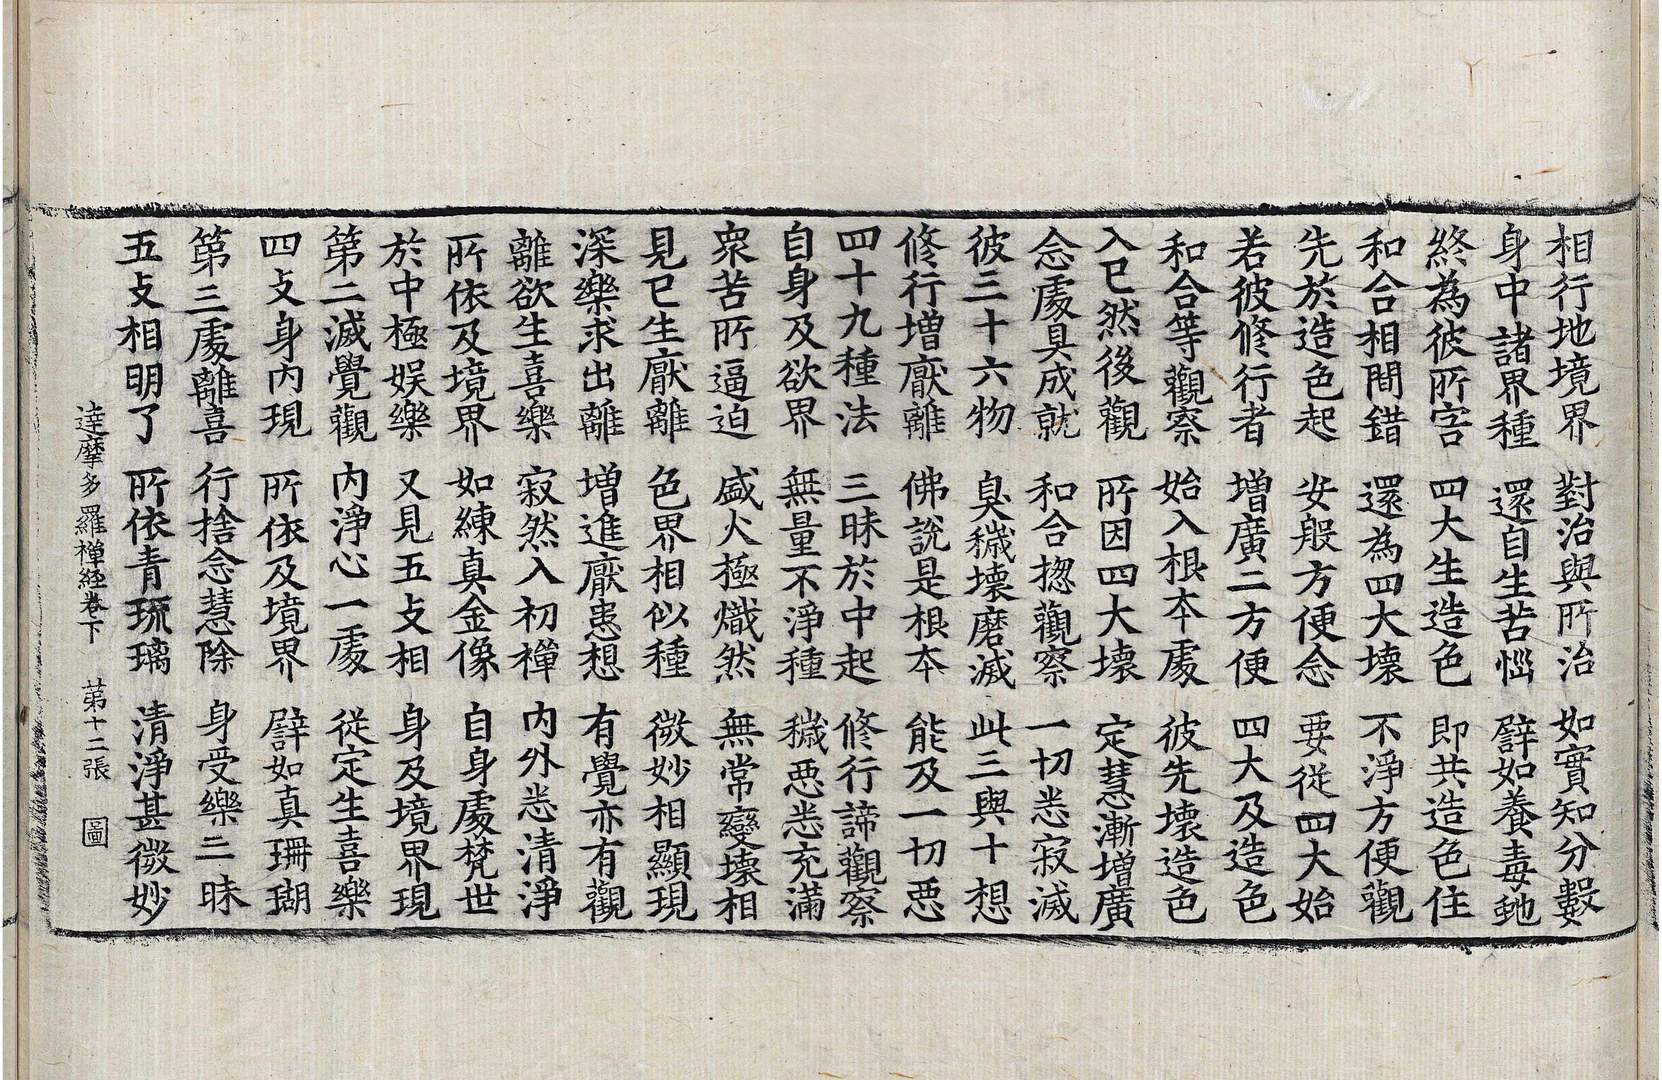 相行地境界 對治與所治 如實知分數
身中諸界種 還自生苦惱 譬如養毒虵
終為彼所害 四大生造色 即共造色住
和合相間錯 還為四大壞 不淨方便觀
先於造色起 安般方便念 要從四大始
若彼修行者 増廣二方便 四大及造色
和合等觀察 始入根夲䖏 彼先壞造色
入已然後觀 所因四大壞 定慧漸増廣
念䖏具成就 和合揔觀察 一切悉寂滅
彼三十六物 臭穢壞磨滅 此三與十想
修行増厭離 佛說是根夲 能及一切惡
四十九種法 三昧於中起 修行諦觀察
自身及欲界 無量不淨種 穢惡悉充滿
衆苦所逼迫 盛火極熾然 無常變壞相
見已生厭離 色界相似種 微妙相顯現
深樂求出離 増進厭患想 有覺亦有觀
離欲生喜樂 寂然入初禪 内外悉清淨
所依及境界 如練真金像 自身䖏梵世
於中極娛樂 又見五支相 身及境界現
第二滅覺觀 内淨心一䖏 從定生喜樂
四支身内現 所依及境界 譬如真珊瑚
第三䖏離喜 行捨念慧除 身受樂三昧
五支相明了 所依青琉璃 清淨甚微妙
達摩多羅禪経卷下 苐十二張 圖